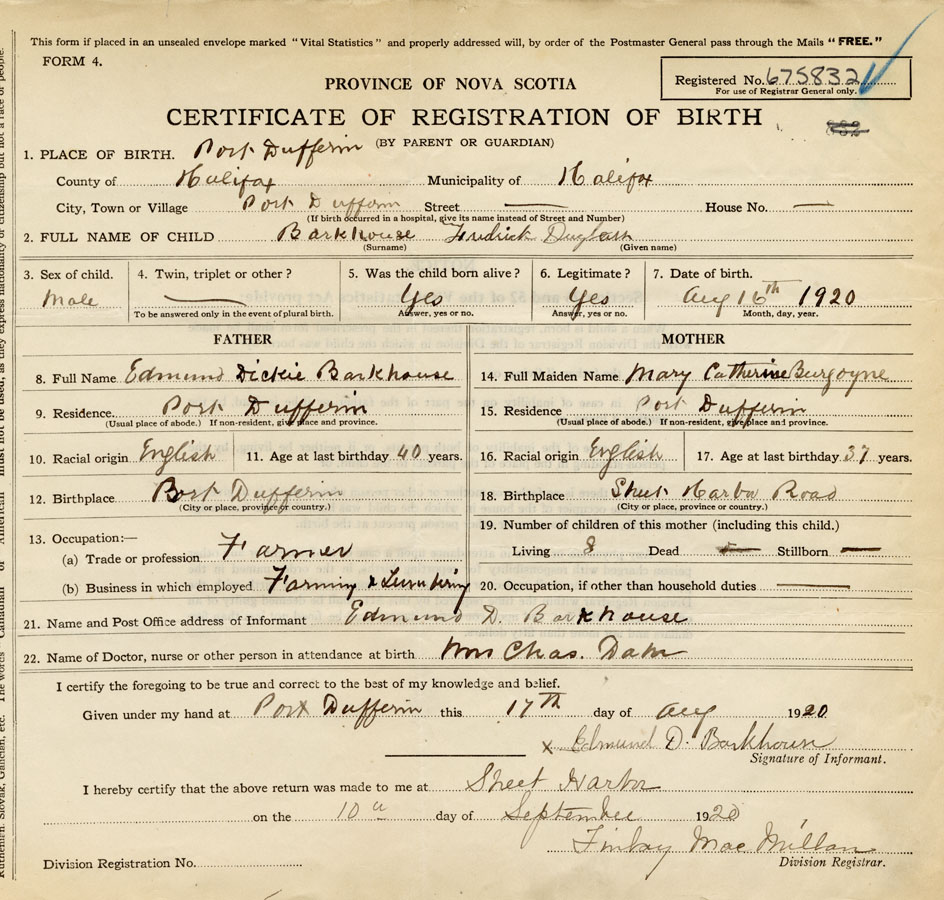 This form if placed in an unsealed envelope marked "Vital Statistics" and properly addressed will, by order of the Postmaster General pass through the Mails "FREE."
FORM 4.
Registered No. 675832
For use of Registrar General only.
PROVINCE OF NOVA SCOTIA
CERTIFICATE OF REGISTRATION OF BIRTH
(BY PARENT OR GUARDIAN)
1. PLACE OF BIRTH. Port Dufferin
County of Halifax Municipality of Halifax
City, Town or Village Port Dufferin Street — House No. —
(If birth occurred in a hospital, give its name instead of Street and Number)
2. FULL NAME OF CHILD Barkhouse Fredrick Duglass
(Surname) (Given name)
3. Sex of child. 4. Twin, triplet or other? 5. Was the child born alive? 6. Legitimate? 7. Date of birth.
Male — Yes Yes Aug 16th 1920
To be answered only in the event of plural birth. Answer, yes or no. Answer, yes or no. Month, day, year.
FATHER
8. Full Name Edmund Dickie Barkhouse
9. Residence. Port Dufferin
(Usual place of abode.) If non-resident, give place and province.
10. Racial origin English 11. Age at last birthday 40 years.
12. Birthplace Port Dufferin
(City or place, province or country.)
13. Occupation:—
(a) Trade or profession Farmer
(b) Business in which employed Farming & Lumbering
MOTHER
14. Full Maiden Name Mary Catherine Burgoyne
15. Residence Port Dufferin
(Usual place of abode.) If non-resident, give place and province.
16. Racial origin English 17. Age at last birthday 37 years.
18. Birthplace Sheet Harbor Road
(City or place, province or country.)
19. Number of children of this mother (including this child.)
Living 8 Dead — Stillborn —
20. Occupation, if other than household duties —
21. Name and Post Office address of Informant Edmund D. Barkhouse
22. Name of Doctor, nurse or other person in attendance at birth Mrs Chas.
I certify the foregoing to be true and correct to the best of my knowledge and belief.
Given under my hand at Port Dufferin this 17th day of Aug 1920
x Edmund D. Barkhouse
Signature of Informant.
I hereby certify that the above return was made to me at Sheet Harbor
on the 10th day of September 1920
Finlay MacMillan
Division Registrar.
Division Registration No.